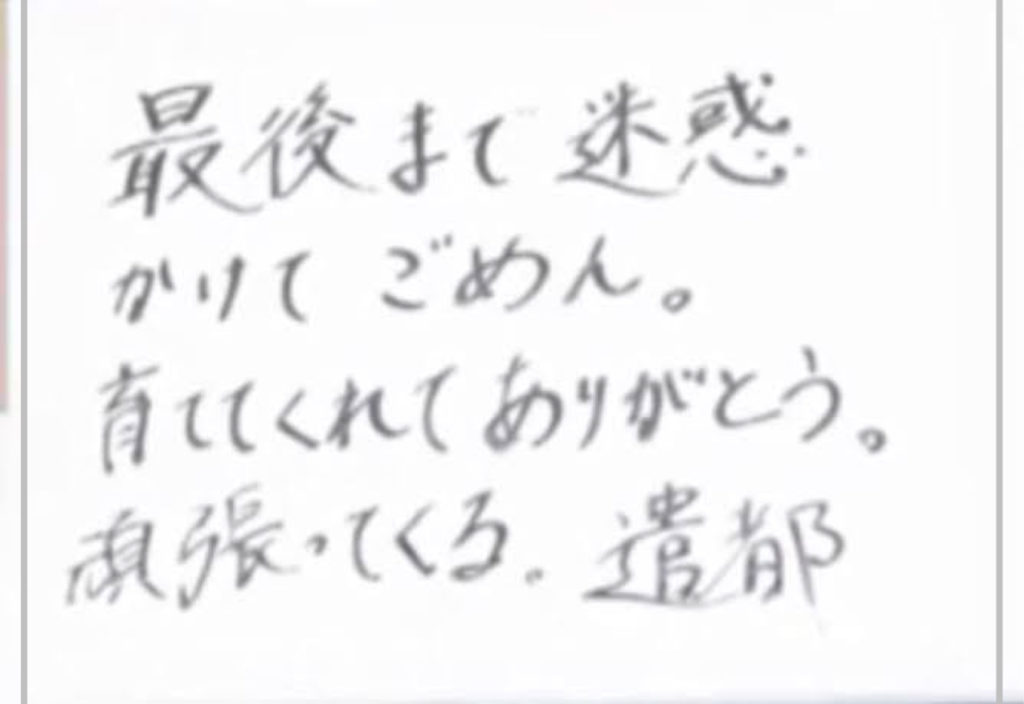 最後まで迷惑
かけてごめん。
育ててくれてありがとう。
頑張ってくる。遣都